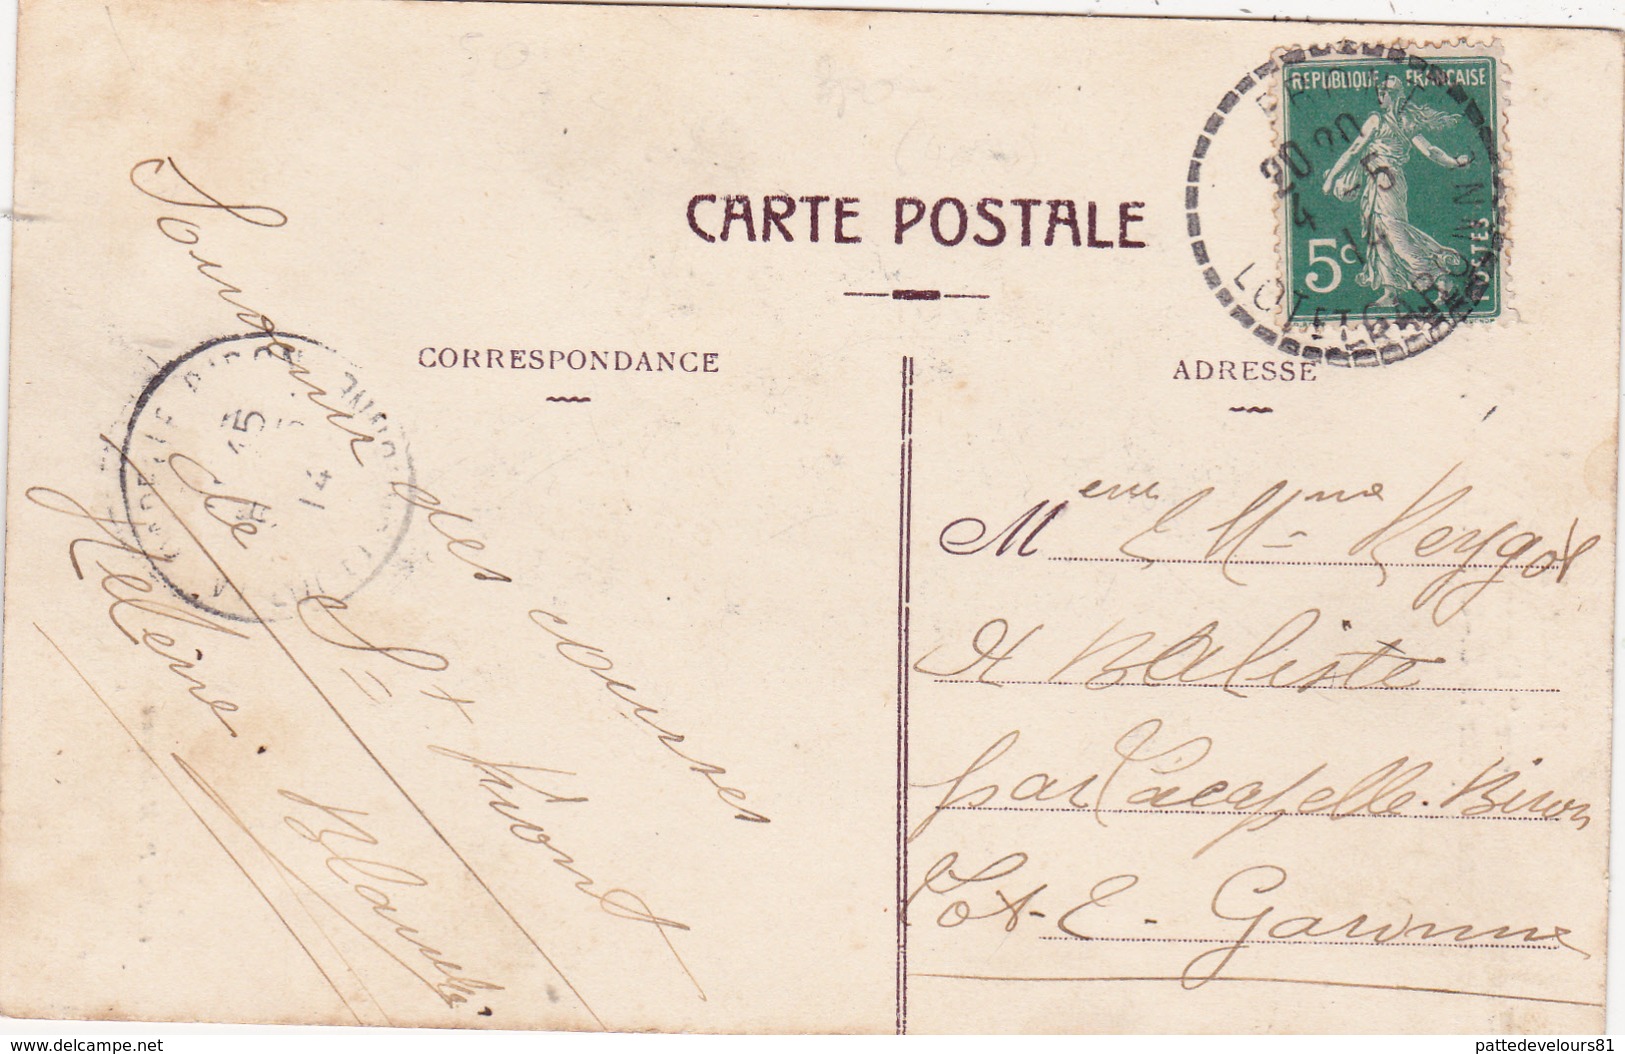 CARTE POSTALE
CORRESPONDANCE
ADRESSE
REPUBLIQUE FRANÇAISE
5c
POSTES
20 20
4 5
14
LOT ET GARONNE
15
14
Souvenir des courses
de St Front
Hélène Blanche
Meur & Mme Reygot
à Baliste
par Lacapelle-Biron
Lot-E-Garonne
www.delcampe.net
pattedevelours81